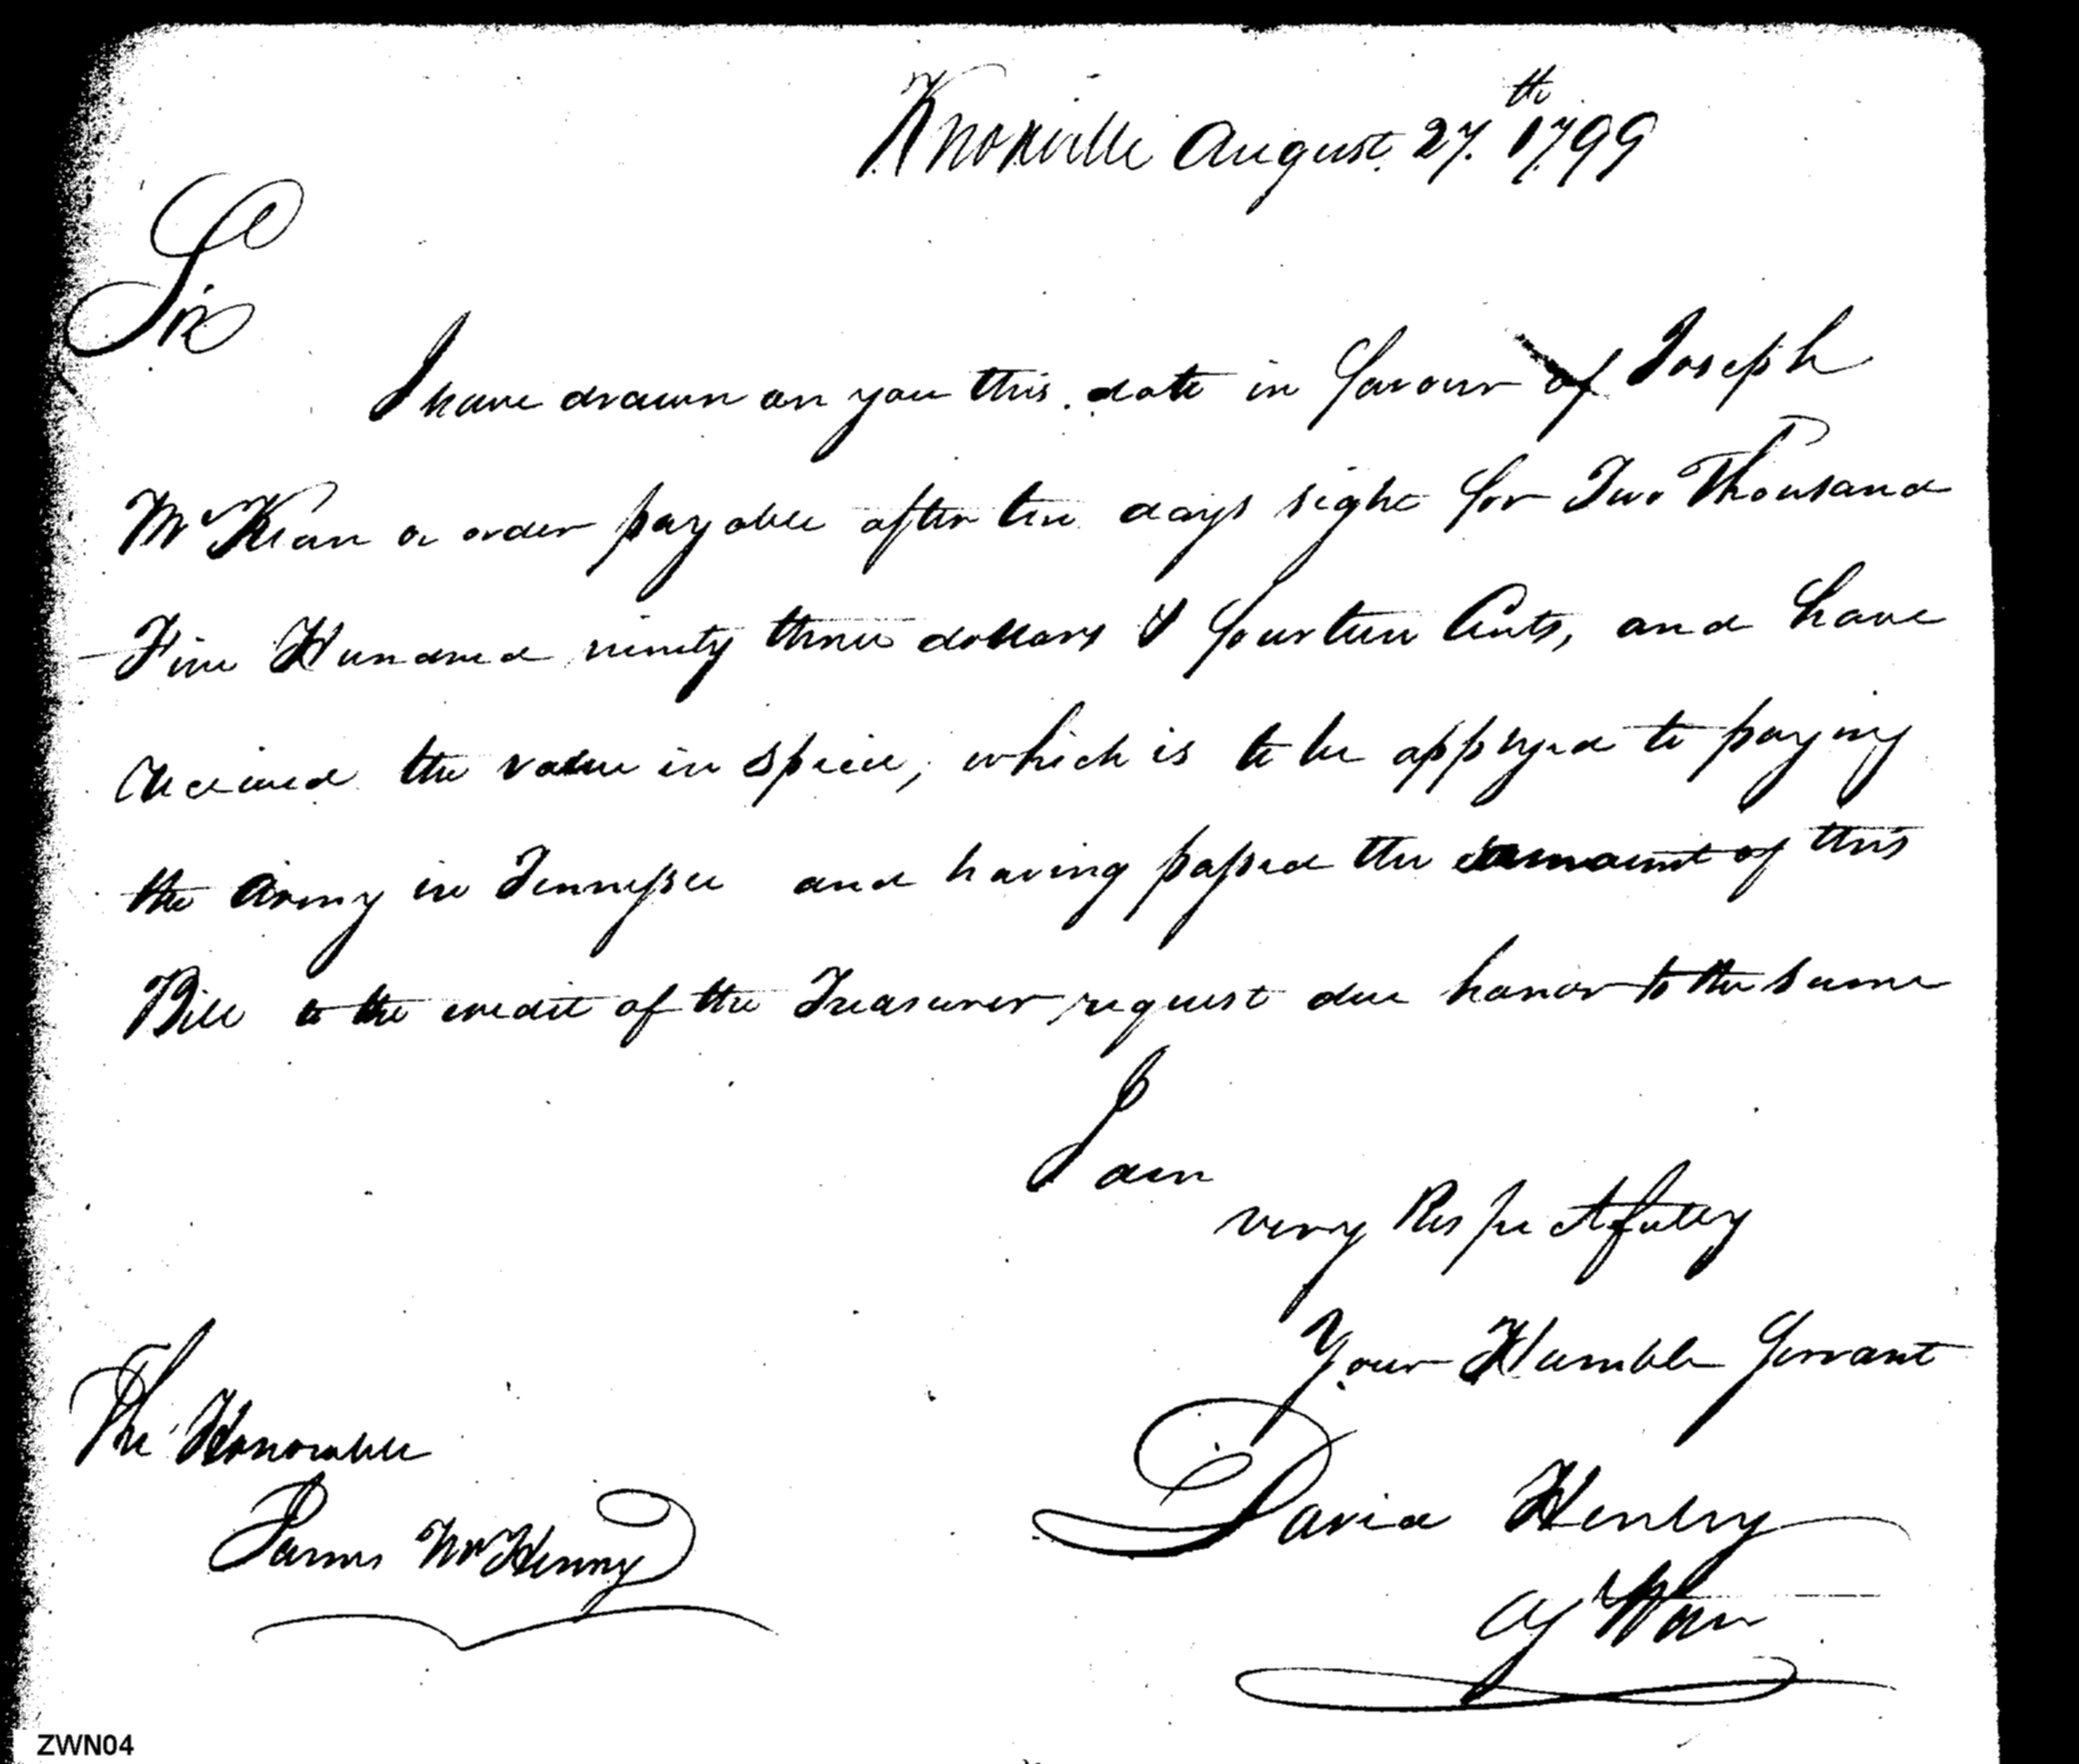 Knoxville August 27.th 1799
Sir
I have drawn on you this date in favour of Joseph
McKean or order payable after ten days sight for Two Thousand
Five Hundred ninety three dollars & fourteen Cents, and have
received the value in specie, which is to be applyed to paying
the Army in Tennessee and having passed the amount of this
Bill to the credit of the Treasurer request due honor to the same
I am
very Respectfully
Your Humble Servant
The Honorable
James McHenry
David Henley
Ag War
ZWN04